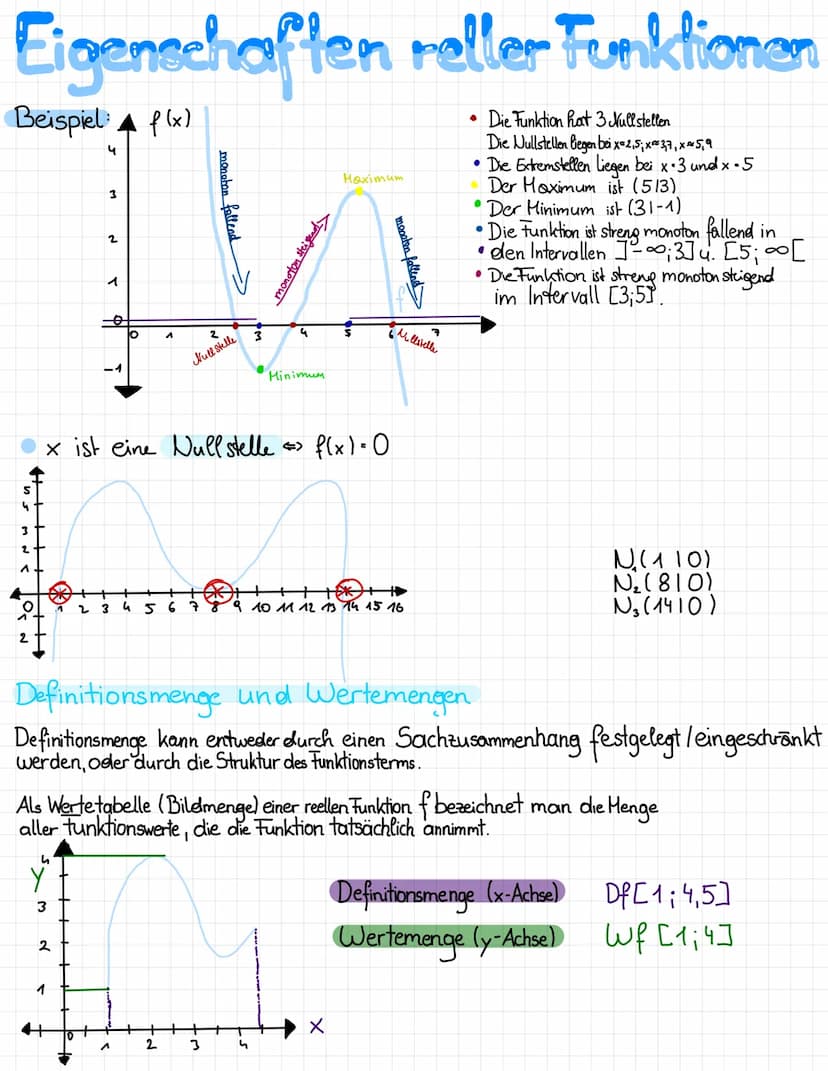 Eigenschaften reller Funktionen
Beispiel:
f(x)
4
3
2
1
0
-1
0 1 2 3 4 5 6 7
monoton fallend
monoton steigend
Maximum
monoton fallend
f
Nullstelle
Minimum
Nullstelle
• Die Funktion hat 3 Nullstellen
Die Nullstellen liegen bei x≈2,5; x≈3,7, x≈5,9
• Die Extremstellen liegen bei x=3 und x=5
• Der Maximum ist (5|3)
• Der Minimum ist (3|-1)
• Die Funktion ist streng monoton fallend in
• den Intervallen ]-∞;3] u. [5; ∞[
• Die Funktion ist streng monoton steigend
im Intervall [3;5].
x ist eine Nullstelle ⇔ f(x)=0
5
4
3
2
1
0 1 2 3 4 5 6 7 8 9 10 11 12 13 14 15 16
1
2
N₁(1|0)
N₂(8|0)
N₃(14|0)
Definitionsmenge und Wertemengen
Definitionsmenge kann entweder durch einen Sachzusammenhang festgelegt/eingeschränkt
werden, oder durch die Struktur des Funktionsterms.
Als Wertetabelle (Bildmenge) einer reellen Funktion f bezeichnet man die Menge
aller Funktionswerte, die die Funktion tatsächlich annimmt.
4
y
3
2
1
0 1 2 3 4
x
Definitionsmenge (x-Achse) Df[1;4,5]
Wertemenge (y-Achse) Wf [1;4]